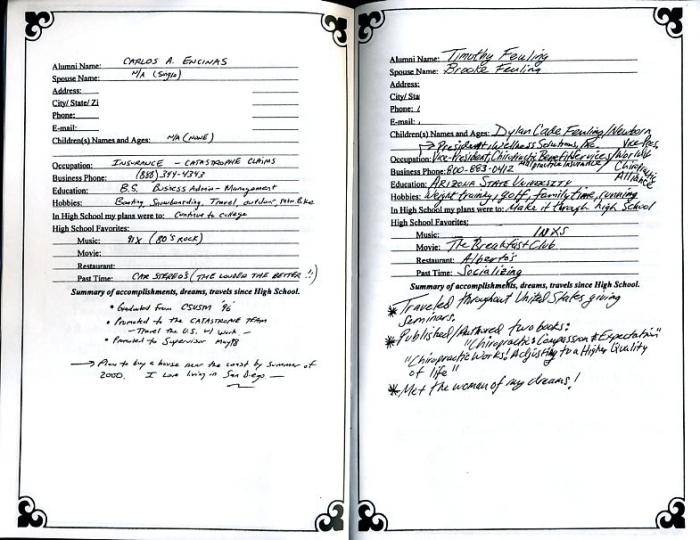 Alumni Name: CARLOS A. ENCINAS
Spouse Name: N/A (Single)
Address:
City/ State/ Zi
Phone:
E-mail:
Children(s) Names and Ages: N/A (NONE)
Occupation: INSURANCE - CATASTROPHE CLAIMS
Business Phone: (888) 344-4343
Education: B.S. Business Admin - Management
Hobbies: Boating, Snowboarding, Travel, outdoor, mtn. bike
In High School my plans were to: Continue to college
High School Favorites:
Music: 91X (80's ROCK)
Movie:
Restaurant:
Past Time: CAR STEREO'S (THE LOUDER THE BETTER!)
Summary of accomplishments, dreams, travels since High School.
• Graduated From CSUSM '96
• Promoted to the CATASTROPHE TEAM
- Travel the U.S. w/ work -
• Promoted to Supervisor
→ Plan to buy a house near the coast by summer of
2000. I Love living in San Diego -
Alumni Name: Timothy Feuling
Spouse Name: Brooke Feuling
Address:
City/ Sta
Phone:
E-mail:
Children(s) Names and Ages: Dylan Cade Feuling/Newborn
→ President, Wellness Solutions, Inc. Vice-Pres,
Occupation: Vice-President, Chiropractic Benefit Services/ Worldwide
Business Phone: 800-883-0412 malpractice insurance/ Chiropractic
Alliance
Education: ARIZONA STATE UNIVERSITY
Hobbies: Weight training, golf, family time, running
In High School my plans were to: Make it through high School
High School Favorites:
Music: INXS
Movie: The Breakfast Club
Restaurant: Alberto's
Past Time: Socializing
Summary of accomplishments, dreams, travels since High School.
* Traveled throughout United States giving
seminars.
* Published/Authored two books:
"Chiropractic: Compassion & Expectation"
"Chiropractic Works! Adjusting to a Higher Quality
of life"
* Met the woman of my dreams!